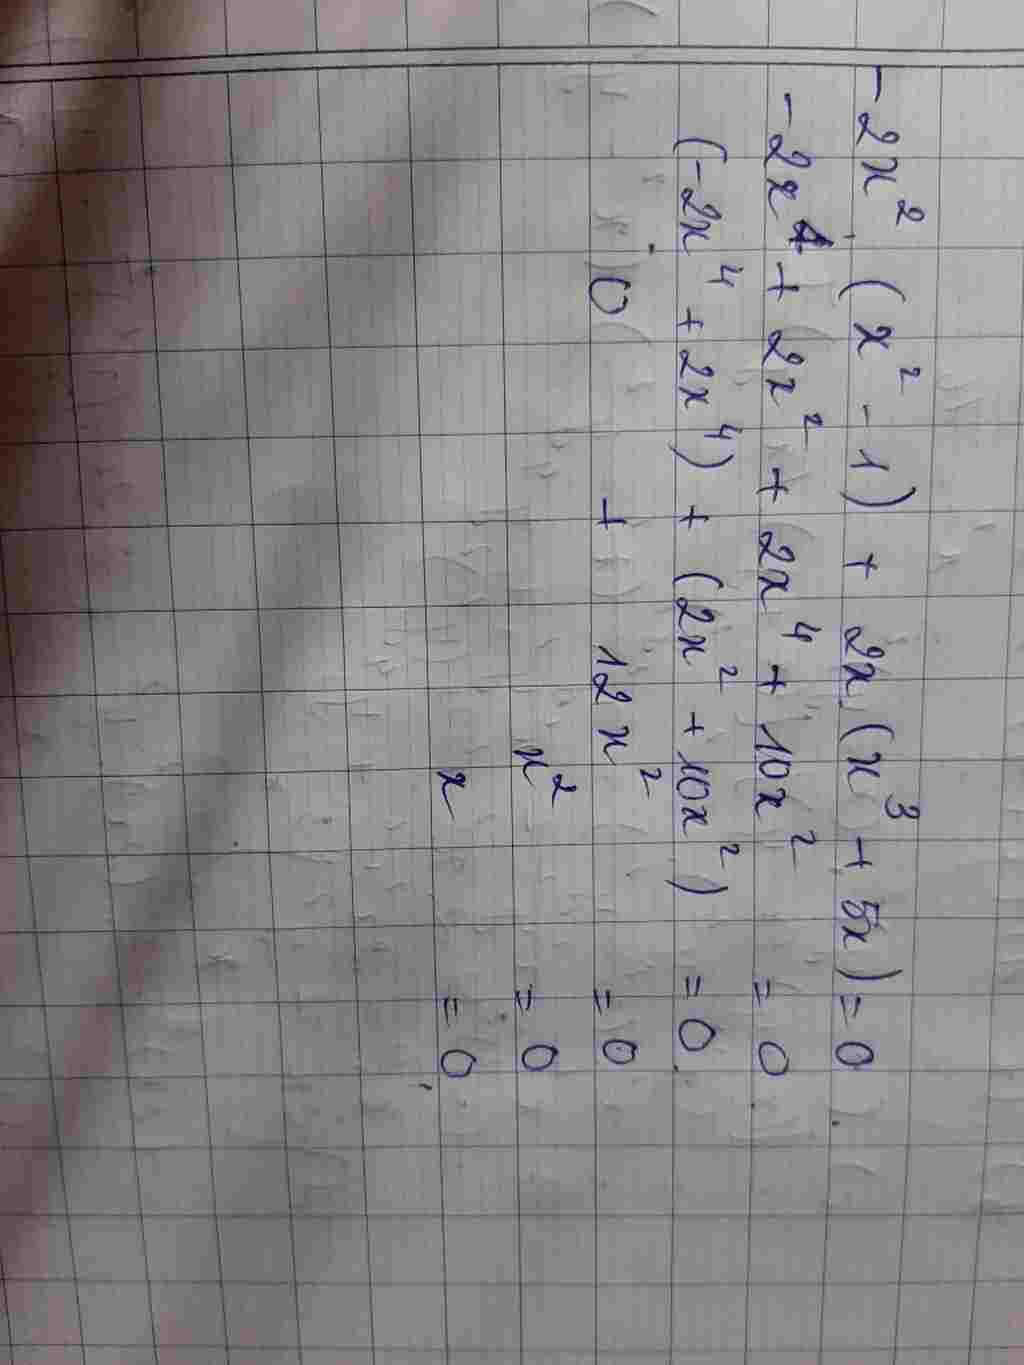 -2x² (x² - 1) + 2x (x³ + 5x) = 0
-2x⁴ + 2x² + 2x⁴ + 10x² = 0
(-2x⁴ + 2x⁴) + (2x² + 10x²) = 0
0 + 12x² = 0
x² = 0
x = 0